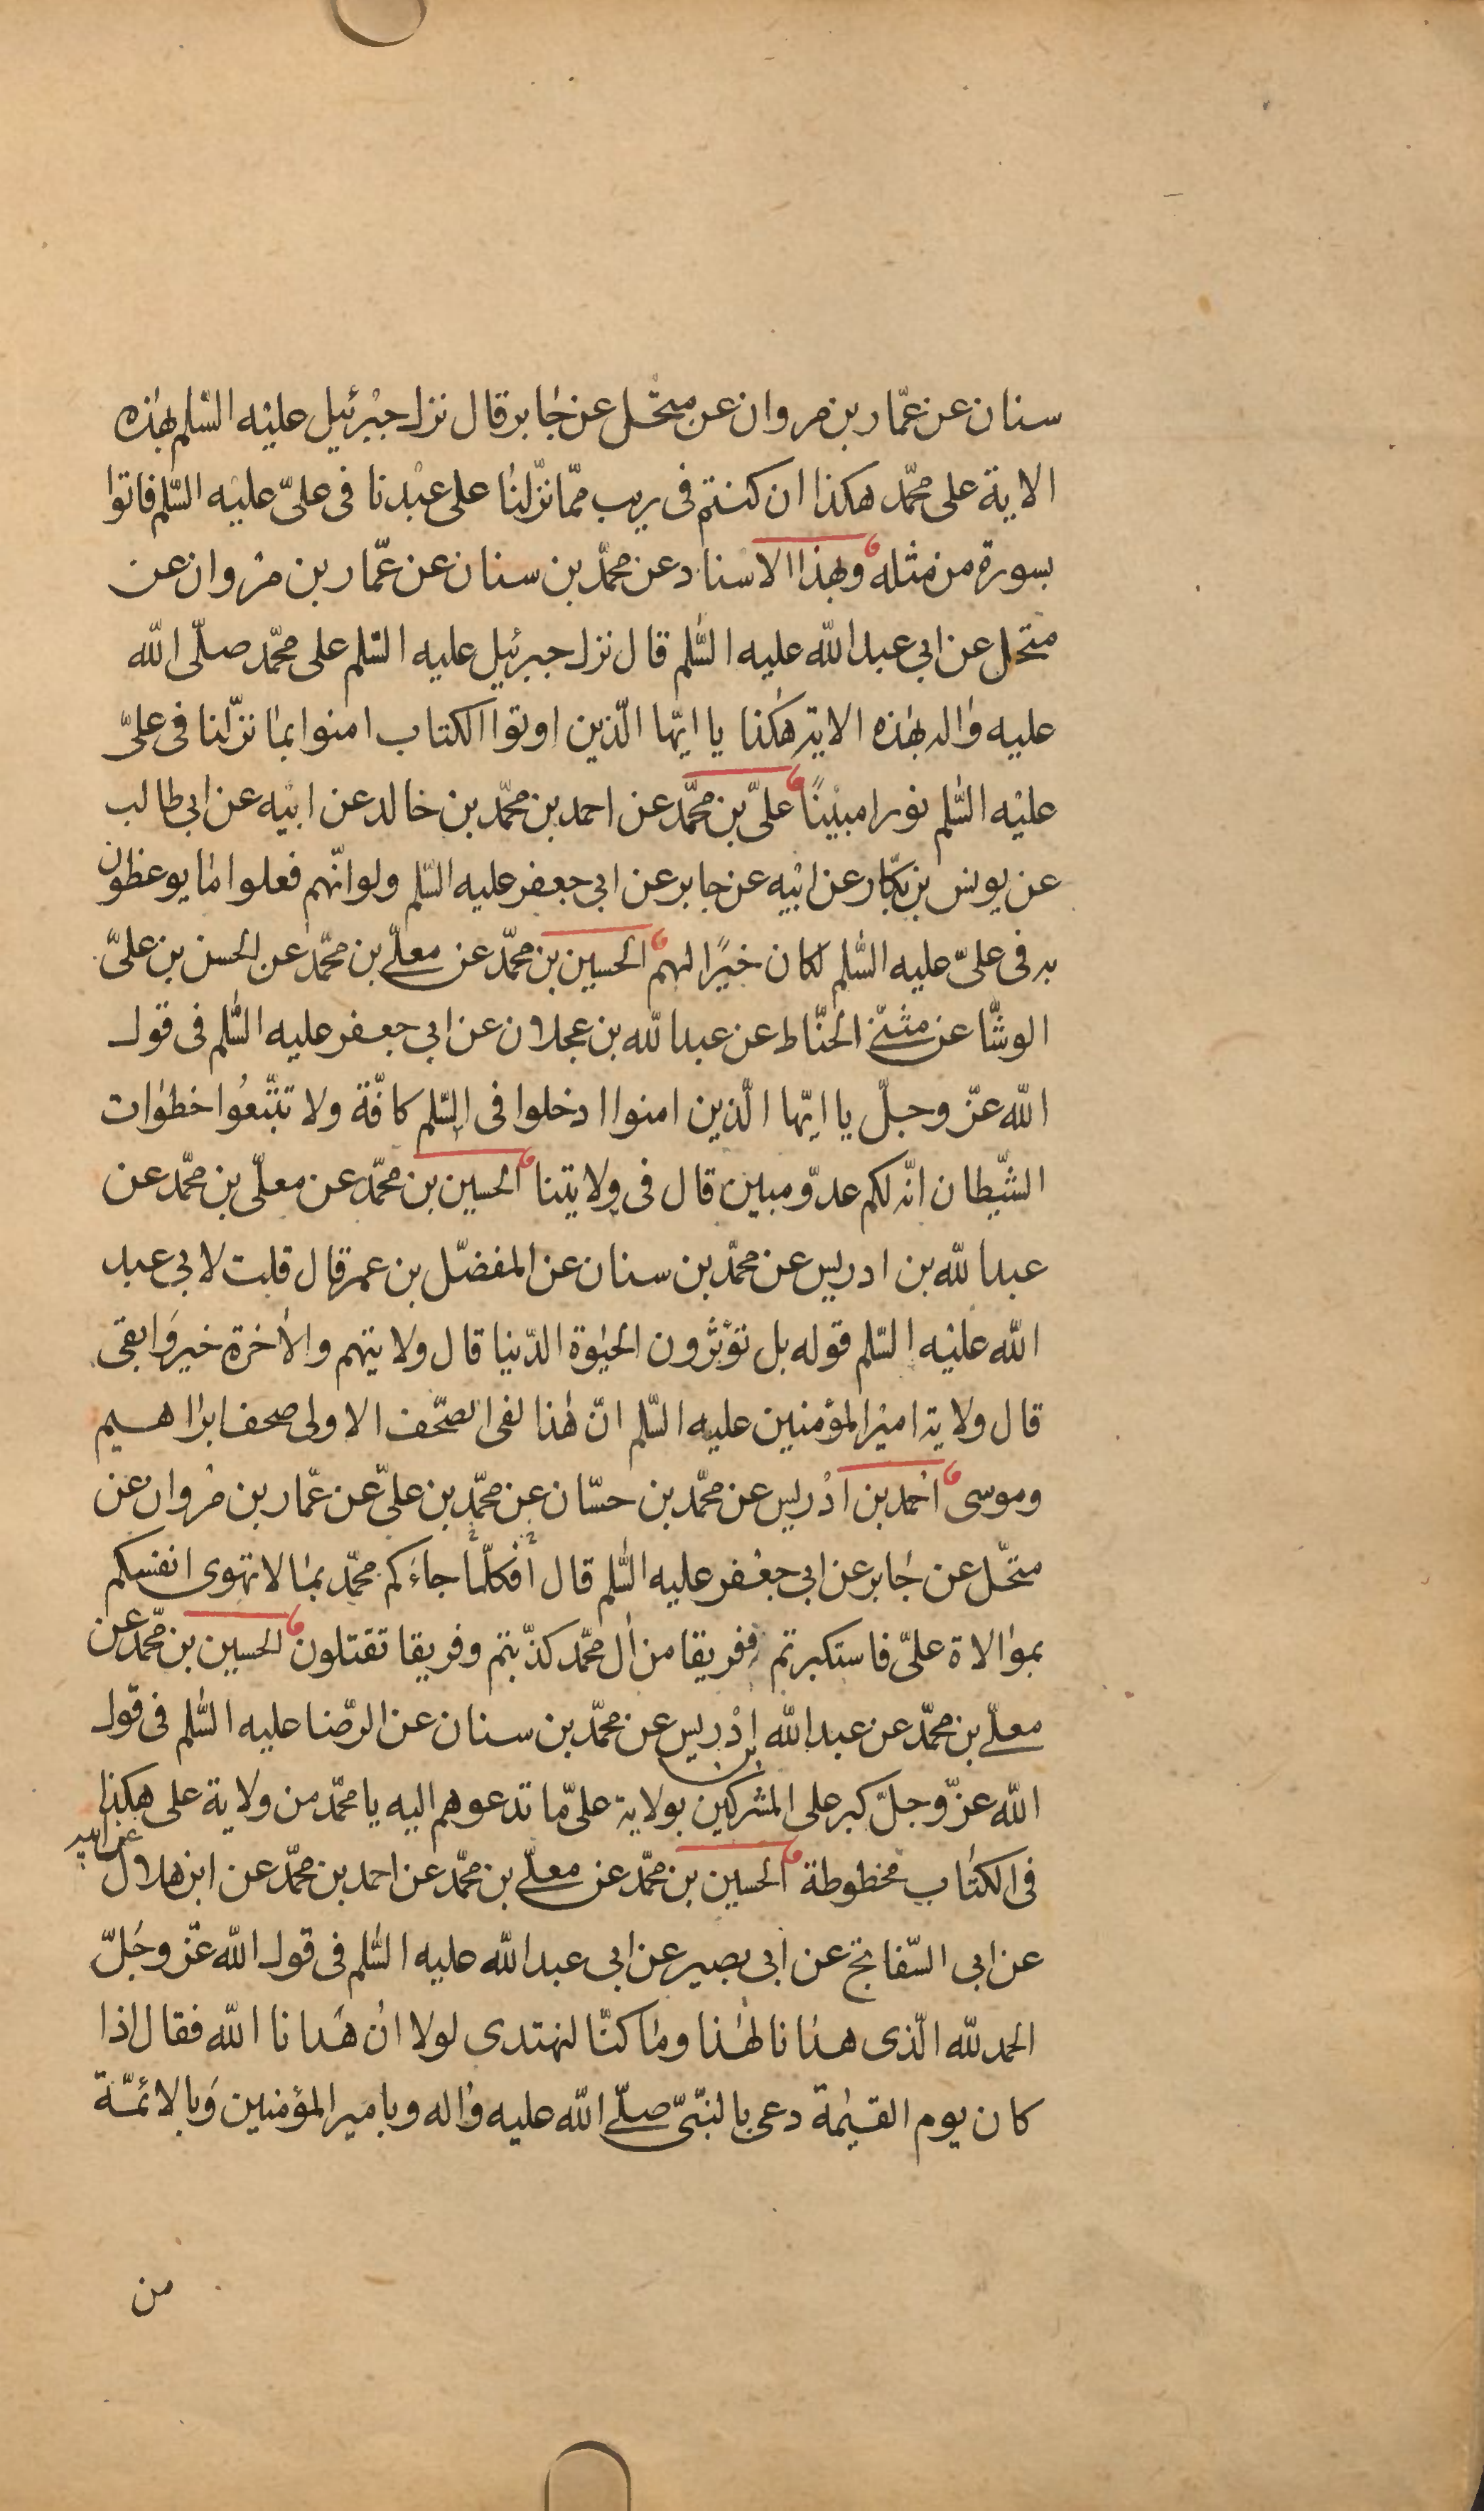 سنان عن عمّار بن مروان عن منخّل عن جابر قال نزل جبرئيل عليه السّلم بهذه
الاية على محمّد هكذا ان كنتم فى ريب ممّا نزّلنا على عبدنا فى علىّ عليه السّلم فاتوا
بسورة من مثله وبهذا الاسناد عن محمّد بن سنان عن عمّار بن مروان عن
منخل عن ابي عبد الله عليه السّلم قال نزل جبرئيل عليه السّلم على محمّد صلّى الله
عليه واله بهذه الاية هكذا يا ايّها الّذين اوتوا الكتاب امنوا بما نزّلنا فى علىّ
عليه السّلم نورا مبينًا علىّ بن محمّد عن احمد بن محمّد بن خالد عن ابيه عن ابي طالب
عن يونس بن بكّار عن ابيه عن جابر عن ابي جعفر عليه السّلم ولو انّهم فعلوا ما يوعظون
به فى علىّ عليه السّلم لكان خيرًا لهم الحسين بن محمّد عن معلّى بن محمّد عن الحسن بن علىّ
الوشّا عن مثنّى الحنّاط عن عبد الله بن عجلان عن ابي جعفر عليه السّلم فى قول
الله عزّ وجلّ يا ايّها الّذين امنوا ادخلوا فى السّلم كافّة ولا تتّبعُوا خطوات
الشّيطان انّه لكم عدوّ مبين قال فى ولايتنا الحسين بن محمّد عن معلّى بن محمّد عن
عبد الله بن ادريس عن محمّد بن سنان عن المفضّل بن عمر قال قلت لابي عبد
الله عليه السّلم قوله بل تؤثرون الحيوة الدّنيا قال ولايتهم والاخرة خير وابقى
قال ولاية امير المؤمنين عليه السّلم انّ هذا لفى الصّحف الاولى صحف ابراهيم
وموسى احمد بن ادريس عن محمّد بن حسّان عن محمّد بن علىّ عن عمّار بن مروان عن
منخّل عن جابر عن ابي جعفر عليه السّلم قال أفكلّما جاءَكم محمّد بما لا تهوى انفسكم
بموالاة علىّ فاستكبرتم ففريقا من ال محمّد كذّبتم وفريقا تقتلون الحسين بن محمّد عن
معلّى بن محمّد عن عبد الله بن إدريس عن محمّد بن سنان عن الرّضا عليه السّلم فى قول
الله عزّ وجلّ كبر على المشركين بولاية علىّ ما تدعوهم اليه يا محمّد من ولاية على هكذا
فى الكتاب مخطوطة الحسين بن محمّد عن معلّى بن محمّد عن احمد بن محمّد عن ابن هلال عن ابيه
عن ابي السّفاتج عن ابي بصير عن ابي عبد الله عليه السّلم فى قول الله عزّ وجَلّ
الحمد لله الّذى هدانا لهذا وما كنّا لنهتدى لولا ان هَدانا الله فقال اذا
كان يوم القيمة دعى بالنّبىّ صلّى الله عليه واله وبامير المؤمنين وبالائمّة
من